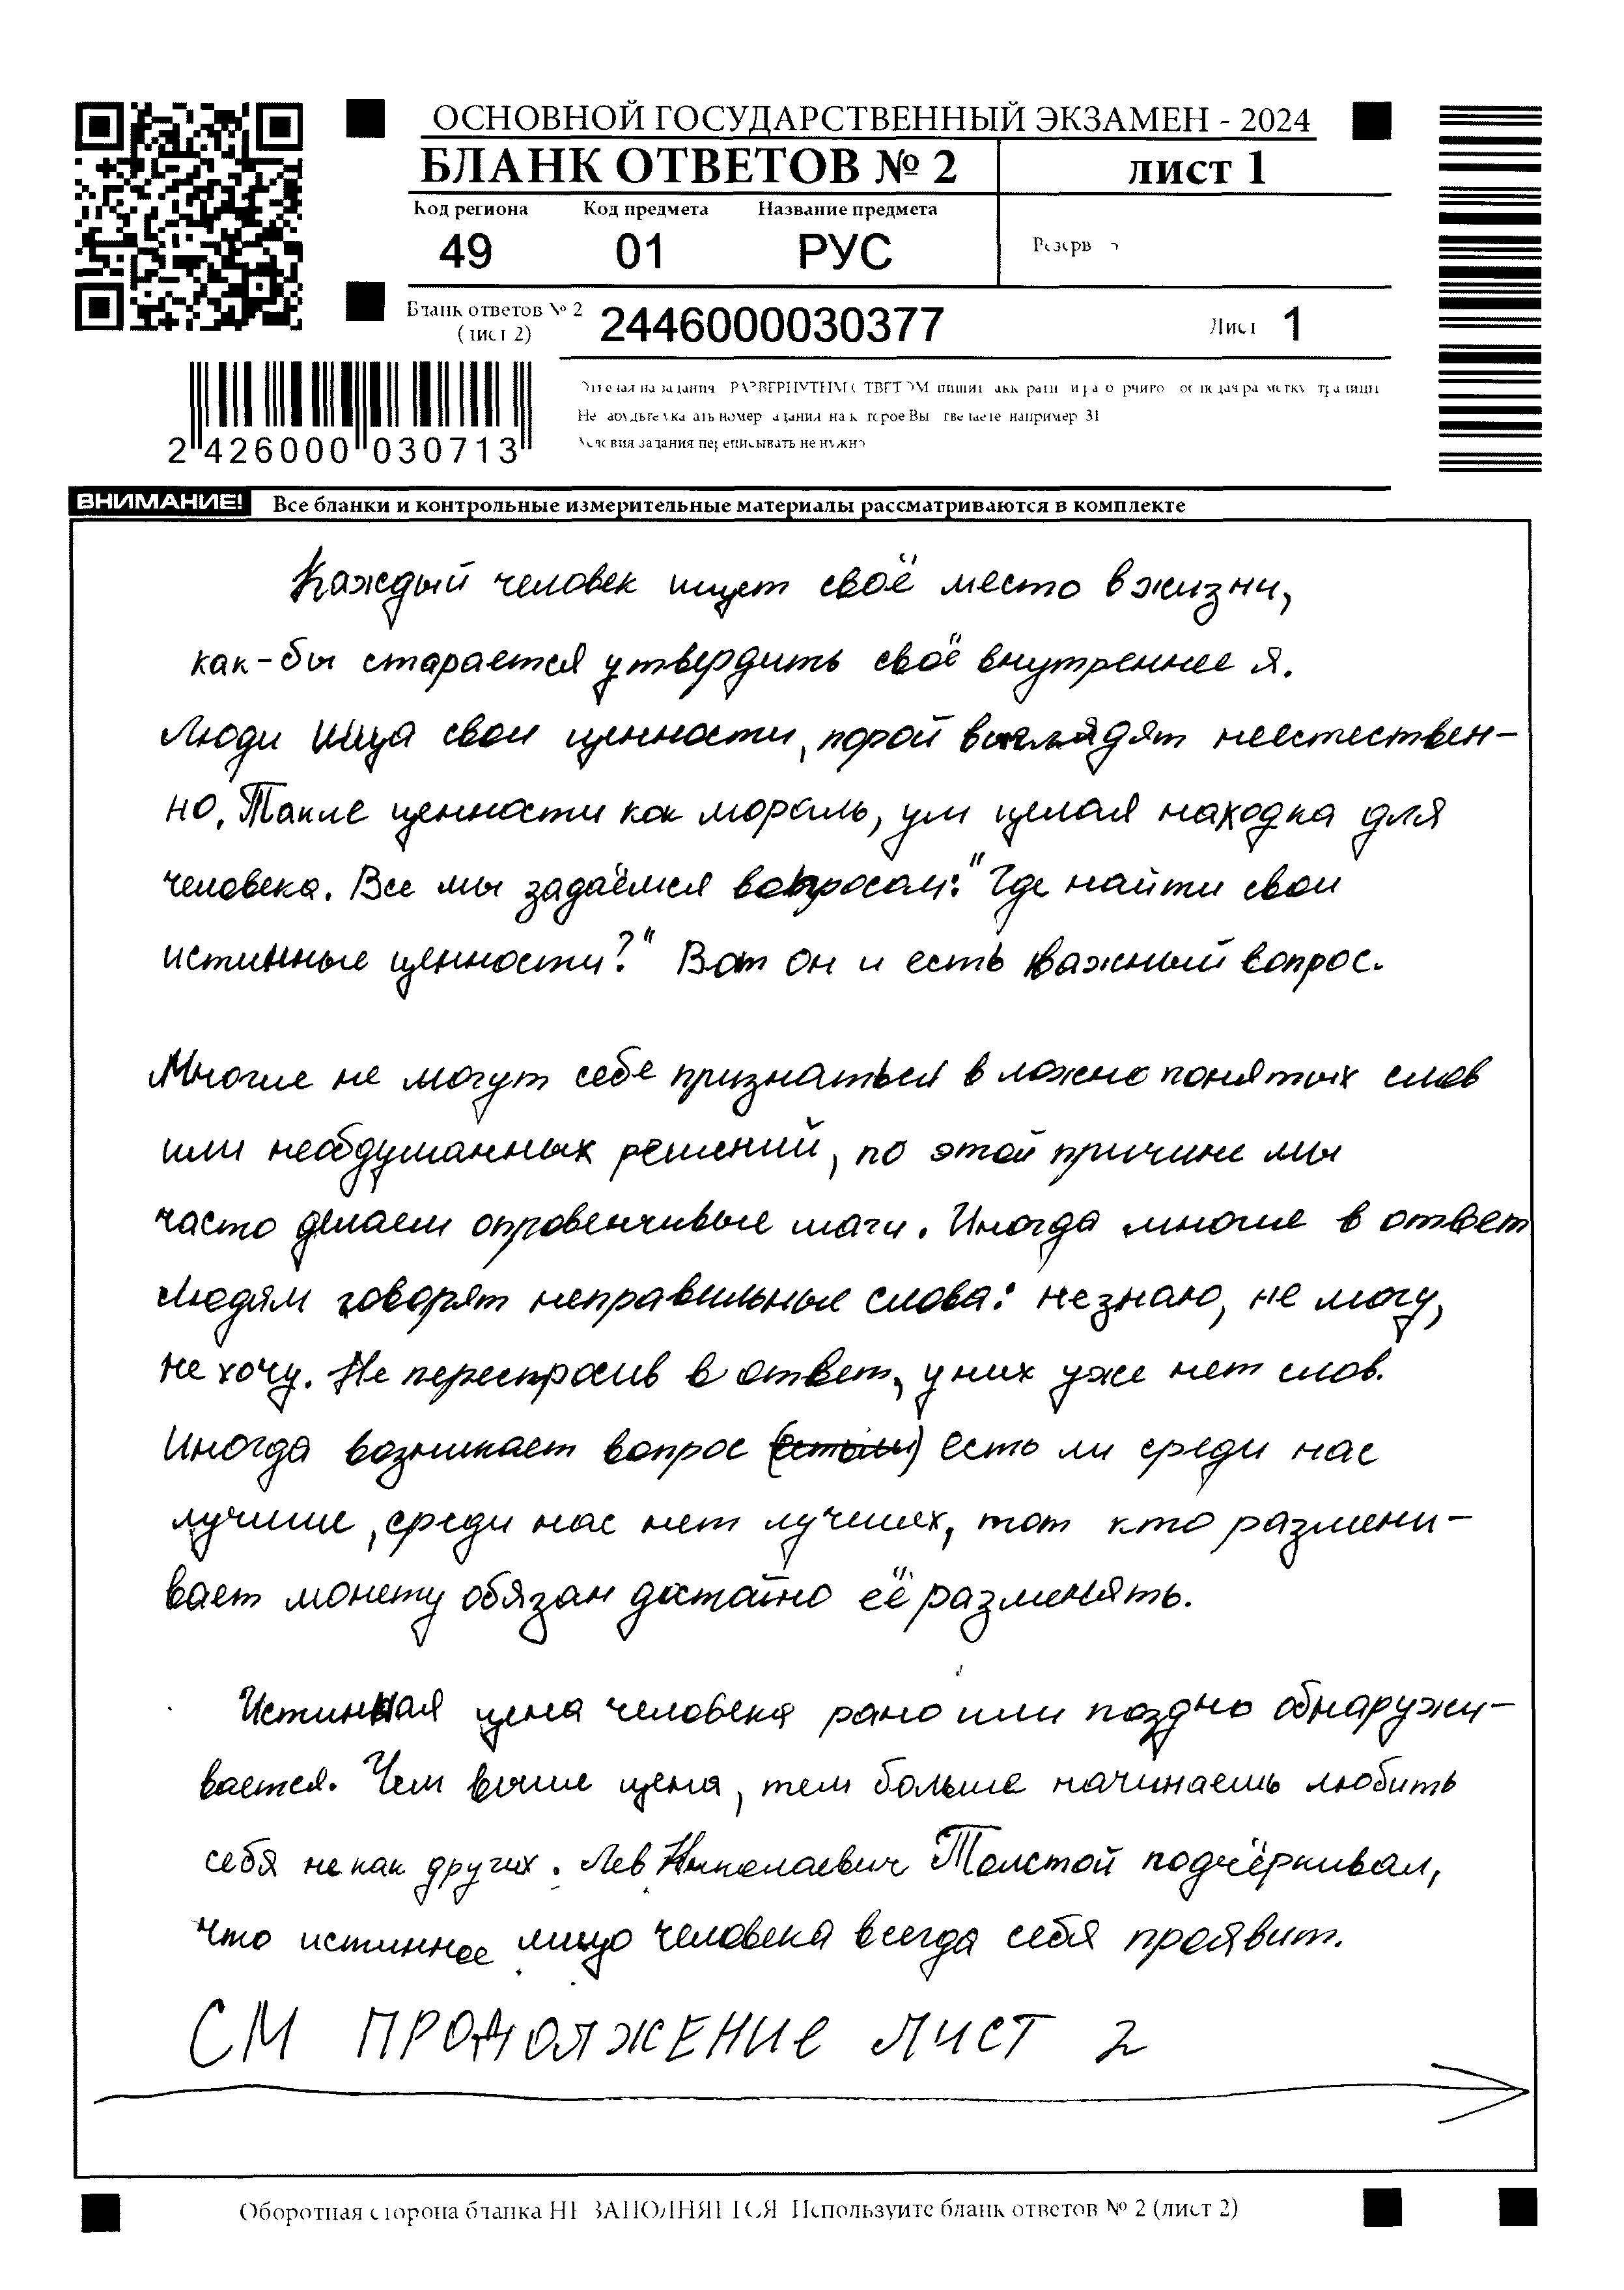 ОСНОВНОЙ ГОСУДАРСТВЕННЫЙ ЭКЗАМЕН - 2024
БЛАНК ОТВЕТОВ № 2 лист 1
Код региона Код предмета Название предмета
49 01 РУС Резерв
Бланк ответов № 2
(лист 2) 2446000030377 Лист 1
2 426000 030713
условия задания переписывать не нужно
ВНИМАНИЕ! Все бланки и контрольные измерительные материалы рассматриваются в комплекте
Каждый человек ищет своё место в жизни,
как-бы старается утвердить своё внутреннее я.
Люди ища свои ценности, порой выглядят неестествен-
но. Такие ценности как мораль, ум целая находка для
человека. Все мы задаёмся вопросам: "Где найти свои
истинные ценности?" Вот он и есть важный вопрос.
Многие не могут себе признаться в ложно понятых слов
или необдуманных решений, по этой причине мы
часто делаем опровенчивые шаги. Иногда многие в ответ
людям говорят неправильные слова: не знаю, не могу,
не хочу. Не переспросив в ответ, у них уже нет слов.
Иногда возникает вопрос (есть ли) есть ли среди нас
лучшие, среди нас нет лучших, тот кто размени-
вает монету обязан достойно её разменять.
Истинная цена человека рано или поздно обнаружи-
вается. Чем выше цена, тем больше начинаешь любить
себя не как других. Лев Николаевич Толстой подчёркивал,
что истинное лицо человека всегда себя проявит.
СМ ПРОДОЛЖЕНИЕ ЛИСТ 2
Оборотная сторона бланка НЕ ЗАПОЛНЯЕТСЯ Используйте бланк ответов № 2 (лист 2)